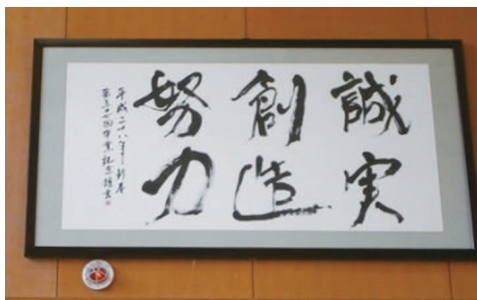 誠実
創造
努力
平成二十八年新春